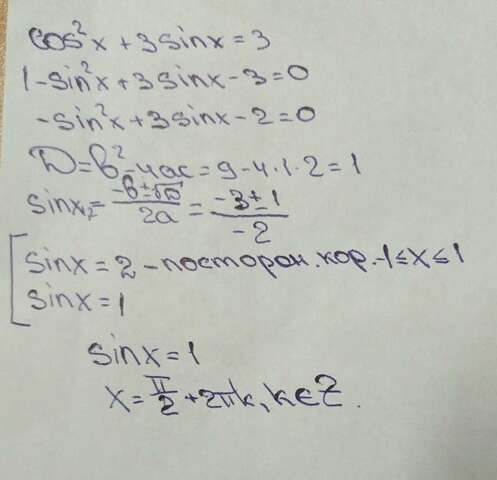 cos²x + 3sinx = 3
1 - sin²x + 3sinx - 3 = 0
-sin²x + 3sinx - 2 = 0
D = b² - 4ac = 9 - 4·1·2 = 1
sinx₁,₂ = (-b ± √D)/2a = (-3 ± 1)/-2
[ sinx = 2 - посторон. кор. -1 ≤ x ≤ 1
sinx = 1
sinx = 1
x = π/2 + 2πk, k ∈ Z.